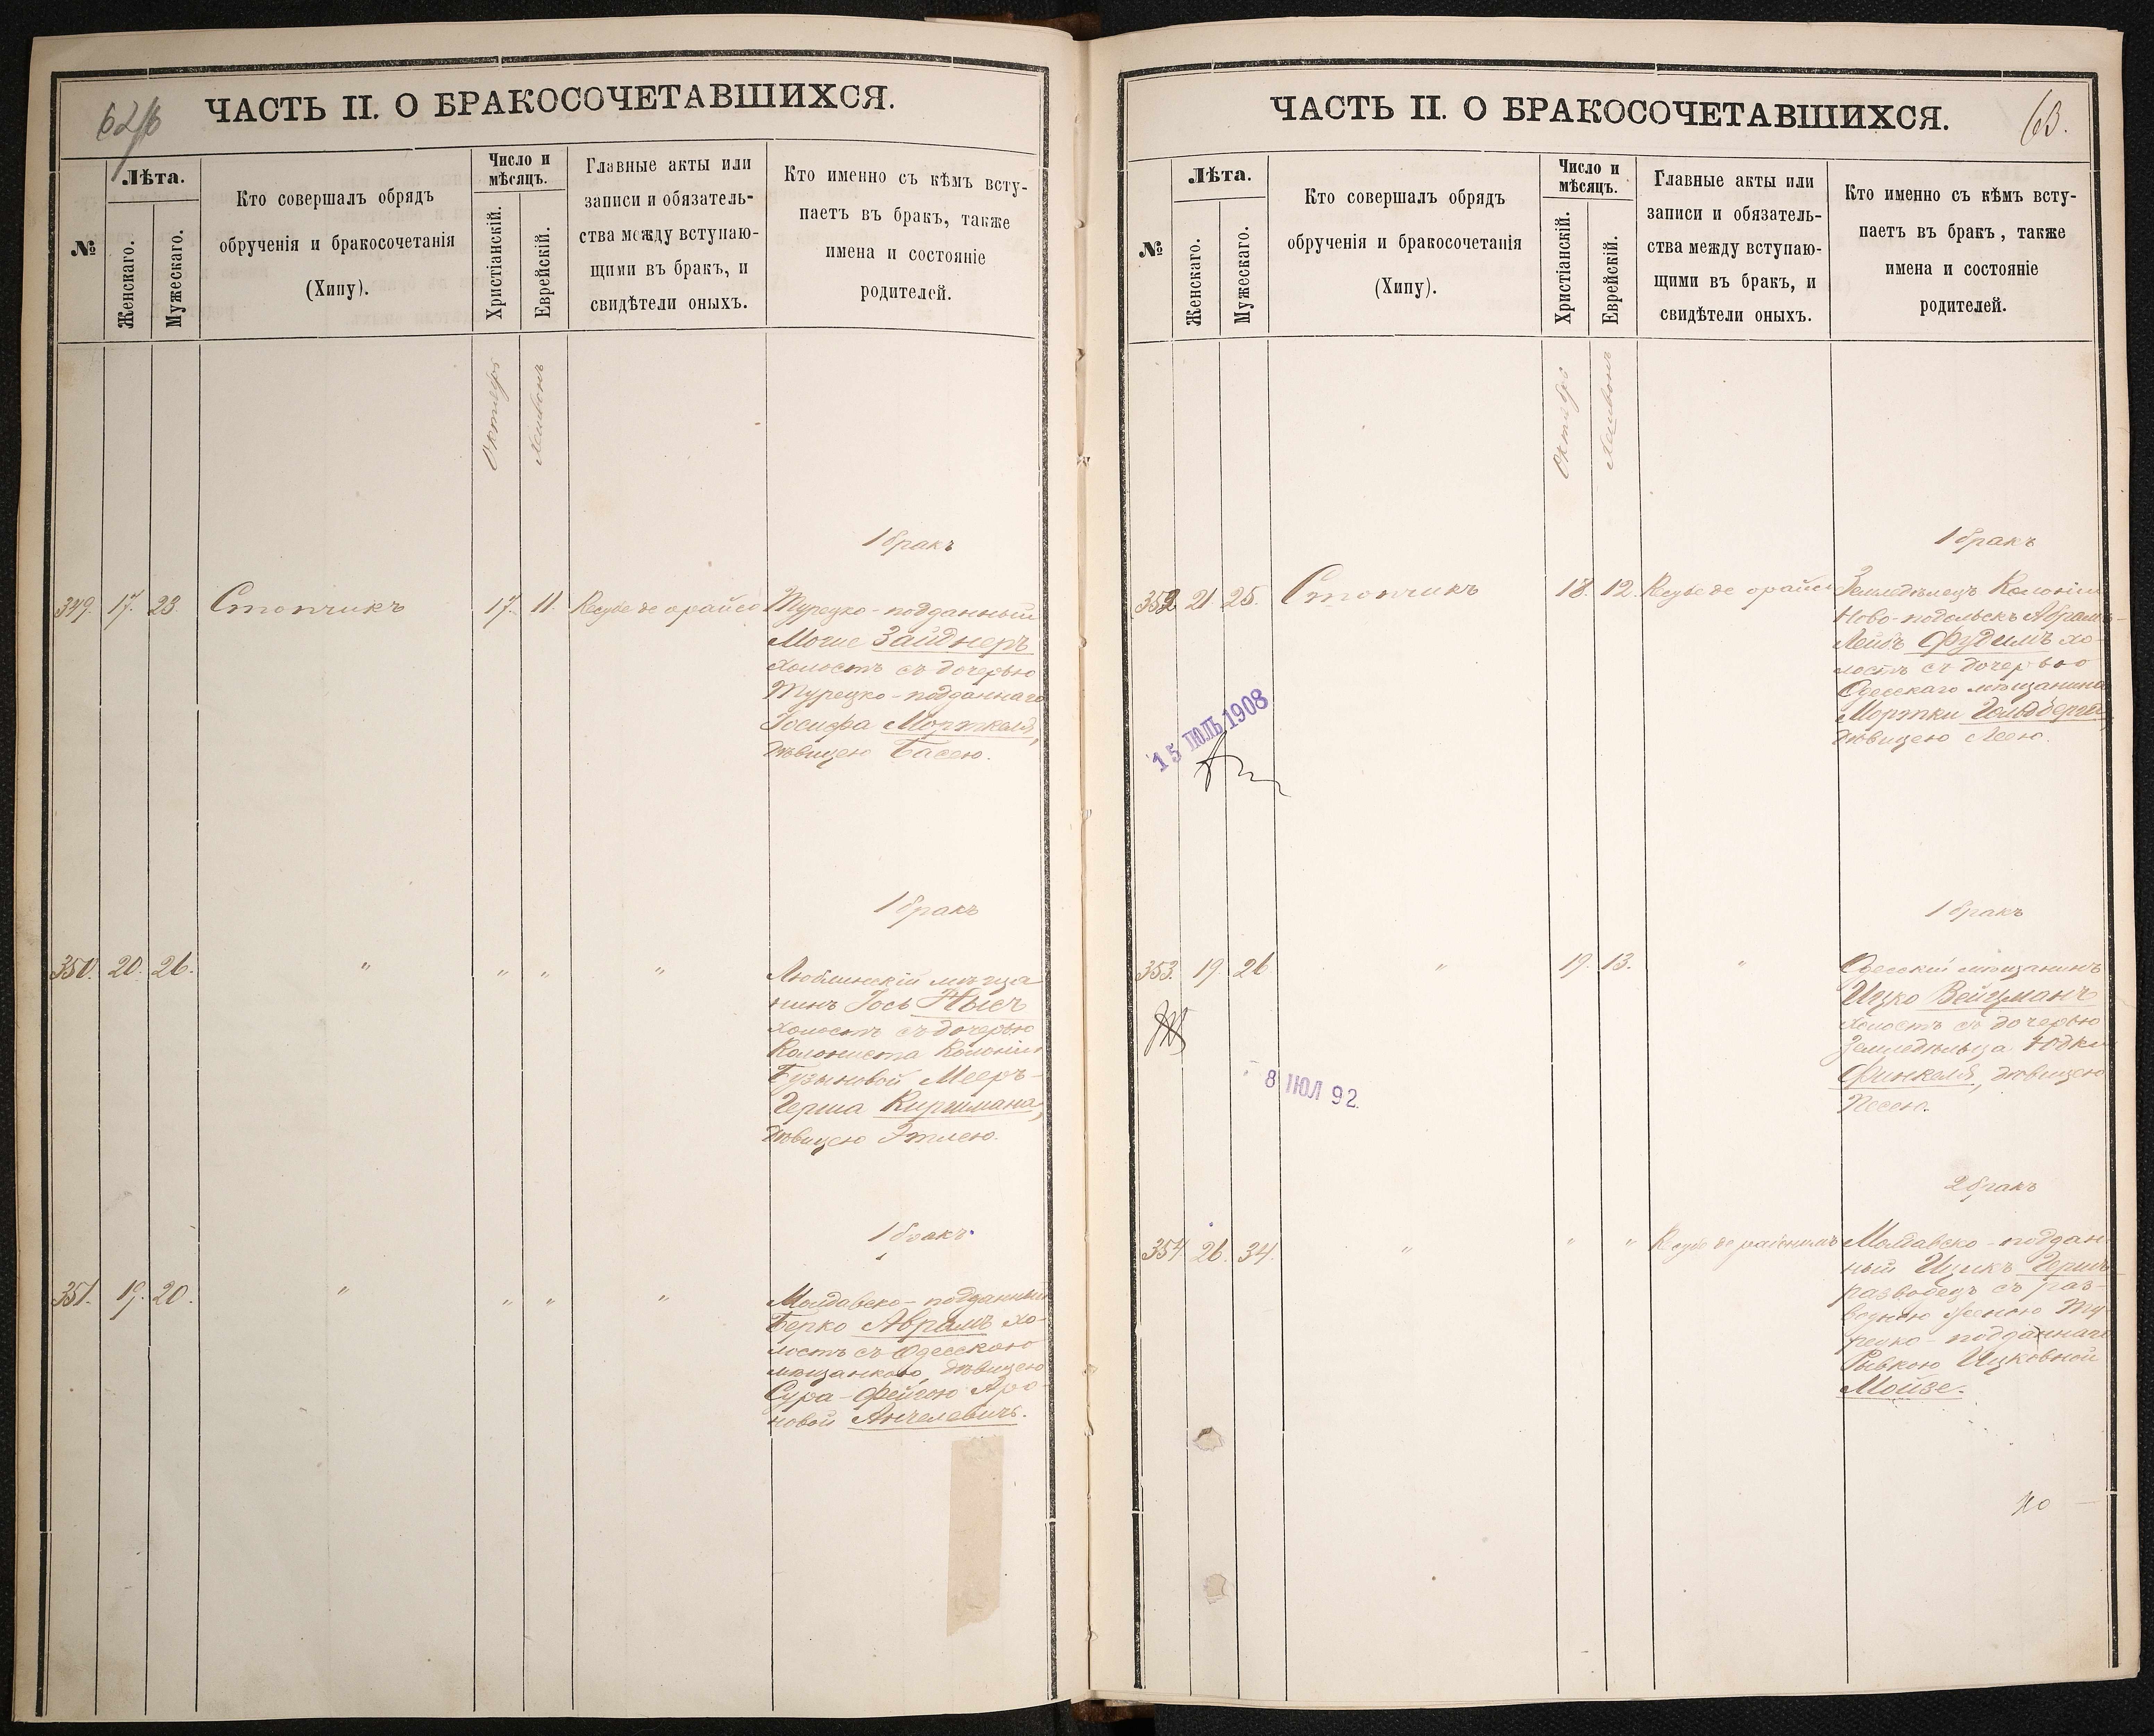 62/б
ЧАСТЬ II. О БРАКОСОЧЕТАВШИХСЯ.
№
Лѣта.
Женскаго.
Мужескаго.
Кто совершалъ обрядъ
обрученія и бракосочетанія
(Хипу).
Число и
мѣсяцъ.
Христіанскій.
Еврейскій.
Главные акты или
записи и обязатель-
ства между вступаю-
щими въ бракъ, и
свидѣтели оныхъ.
Кто именно съ кѣмъ всту-
паетъ въ бракъ, также
имена и состояніе
родителей.
Октябрь
Хешвонъ
1 бракъ
349. 17. 23. Стопчикъ 17. 11. Ксубе де орайсо
Турецко-подданный
Могие Зайднеръ
холостъ съ дочерью
Турецко-подданнаго
Іосифа Морткова,
дѣвицею Басею.
1 бракъ
350. 20. 26. " " " "
Люблинскій мѣща
нинъ Іось
холостъ съ дочерью
Колониста Колоніи
Мееръ-
Герша Киршмана,
дѣвицею Этлею.
1 бракъ
351. 19. 20. " " " "
Молдавско-подданный
Берко Аврамъ хо-
лостъ съ Одесскою
мѣщанкою, дѣвицею
Сура-Фейгою Аро-
новой Анчелевичъ.
63.
ЧАСТЬ II. О БРАКОСОЧЕТАВШИХСЯ.
№
Лѣта.
Женскаго.
Мужескаго.
Кто совершалъ обрядъ
обрученія и бракосочетанія
(Хипу).
Число и
мѣсяцъ.
Христіанскій.
Еврейскій.
Главные акты или
записи и обязатель-
ства между вступаю-
щими въ бракъ, и
свидѣтели оныхъ.
Кто именно съ кѣмъ всту-
паетъ въ бракъ, также
имена и состояніе
родителей.
Октябрь
Хешвонъ
1 бракъ
352. 21. 25. Стопчикъ 18. 12. Ксубе де орайсо
Земледѣлецъ Колоніи
Ново-подольскъ Абрамъ-
Лейбъ Фудимъ хо-
лостъ съ дочерью
Одесскаго мѣщанина
Мортки Гольдберга,
дѣвицею Леею.
15 ІЮЛЬ 1908
1 бракъ
353. 19. 26 " 19. 13. "
Одесскій мѣщанинъ
Ицко Вейцманъ
холостъ съ дочерью
Земледѣльца Юдки
Финкеля, дѣвицею
Песею.
8 ІЮЛ 92
2 бракъ
354. 26. 34. " " " Ксубе де
Молдавско-поддан-
ный Ицикъ Гершъ
разводецъ съ раз-
водною женою Ту-
рецко-подданнаго
Рывкою Ицковной
Мойзе.